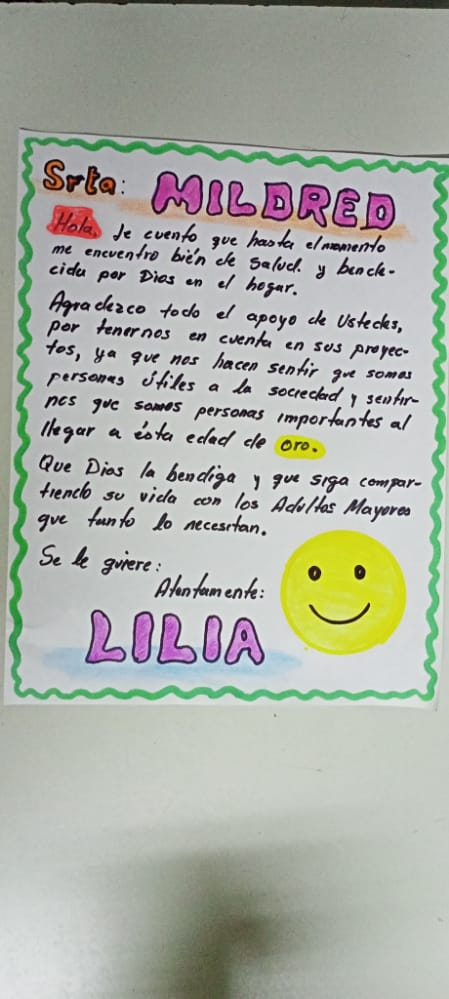 Srta: MILDRED
Hola, le cuento que hasta el momento
me encuentro bién de salud. y bende-
cida por Dios en el hogar.
Agradezco todo el apoyo de Ustedes,
por tenernos en cuenta en sus proyec-
tos, ya que nos hacen sentir que somos
personas útiles a la sociedad y sentir-
nos que somos personas importantes al
llegar a ésta edad de oro.
Que Dios la bendiga y que siga compar-
tiendo su vida con los Adultos Mayores
que tanto lo necesitan.
Se le quiere:
Atentamente:
LILIA